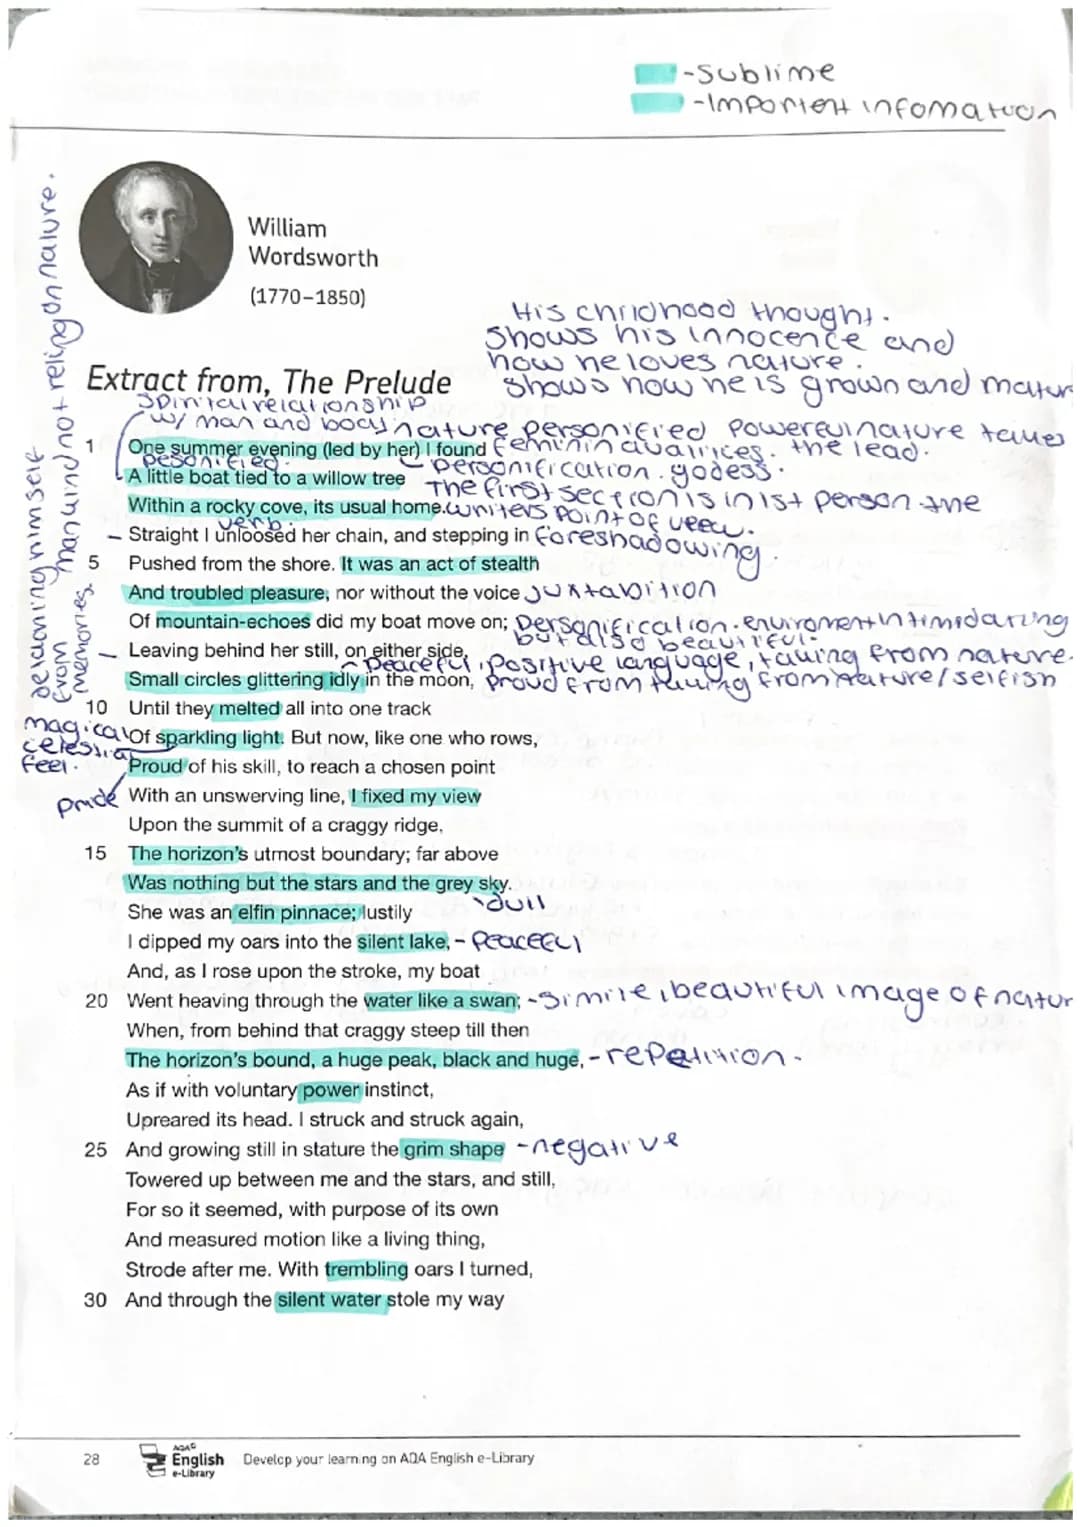 -Sublime
-Important infomation
William
Wordsworth
(1770–1850)
His childhood thought.
Shows his innocence and
how he loves nature.
Shows how he is grown and matur
Extract from, The Prelude
relationship
w/ man and nature personified Powerful nature takes
1 One summer evening (led by her) I found feminin the lead.
pesonified. personification. godess.
A little boat tied to a willow tree The first section is in 1st person the
Within a rocky cove, its usual home. writers point of
verb.
Straight I unloosed her chain, and stepping in foreshadowing.
5 Pushed from the shore. It was an act of stealth
And troubled pleasure, nor without the voice
Of mountain-echoes did my boat move on; Personification. enviroment intimidating
but also beautiful.
Leaving behind her still, on either side,
Peaceful, Positive language, taking from nature
Small circles glittering idly in the moon, Proud from taking from nature/selfish
10 Until they melted all into one track
Of sparkling light. But now, like one who rows,
magical
celestial
feel.
Proud of his skill, to reach a chosen point
pride
With an unswerving line, I fixed my view
Upon the summit of a craggy ridge,
15 The horizon's utmost boundary; far above
Was nothing but the stars and the grey sky.
dull
She was an elfin pinnace; lustily
I dipped my oars into the silent lake, - Peaceful
And, as I rose upon the stroke, my boat
20 Went heaving through the water like a swan; - simile, beautiful image of natur
When, from behind that craggy steep till then
The horizon's bound, a huge peak, black and huge, - repetition.
As if with voluntary power instinct,
Upreared its head. I struck and struck again,
25 And growing still in stature the grim shape - negative
Towered up between me and the stars, and still,
For so it seemed, with purpose of its own
And measured motion like a living thing,
Strode after me. With trembling oars I turned,
30 And through the silent water stole my way
himself
from
memories.
not on nature.
28
AQA
English
e-Library
Develop your learning on AQA English e-Library